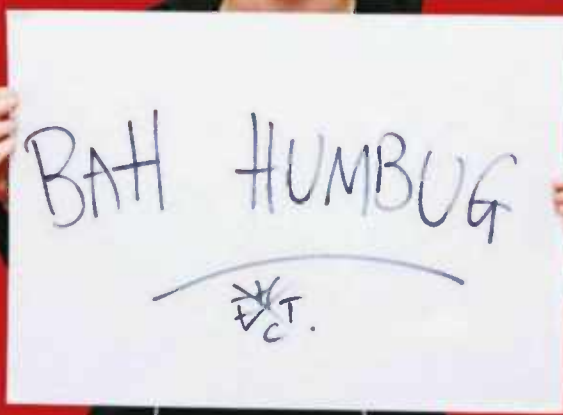 BAH HUMBUG